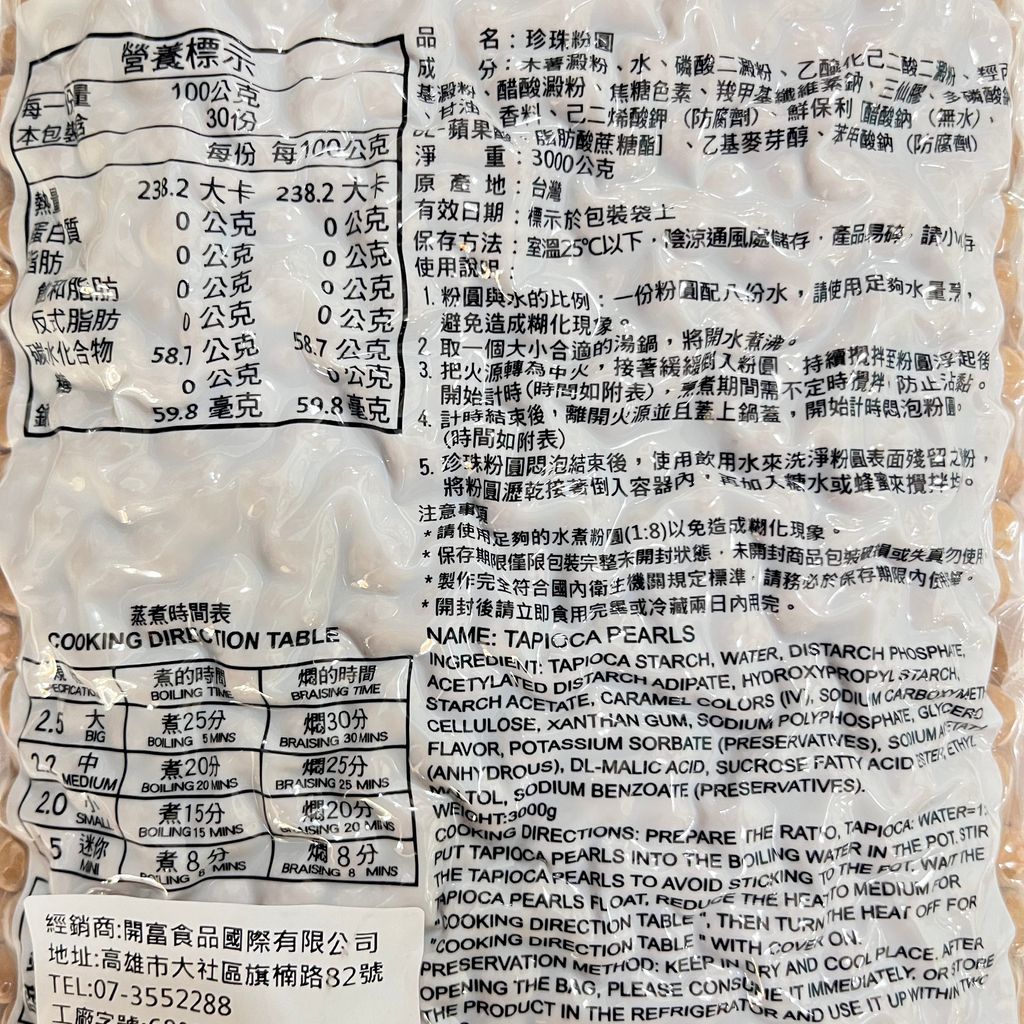 營養標示
每一份量 100公克
本包裝含 30份
每份 每100公克
熱量 238.2 大卡 238.2 大卡
蛋白質 0 公克 0 公克
脂肪 0 公克 0 公克
飽和脂肪 0 公克 0 公克
反式脂肪 0 公克 0 公克
碳水化合物 58.7 公克 58.7 公克
糖 0 公克 0 公克
鈉 59.8 毫克 59.8 毫克
蒸煮時間表
COOKING DIRECTION TABLE
煮的時間 燜的時間
BOILING TIME BRAISING TIME
2.5 大 煮25分 燜30分
BIG BOILING 5 MINS BRAISING 30 MINS
2.2 中 煮20分 燜25分
MEDIUM BOILING 20 MINS BRAISING 25 MINS
2.0 小 煮15分 燜20分
SMALL BOILING 15 MINS BRAISING 20 MINS
5 迷你 煮 8 分 燜 8 分
MINI BOILING 8 MINS BRAISING 8 MINS
經銷商:開富食品國際有限公司
地址:高雄市大社區旗楠路82號
TEL:07-3552288
工廠字號:
品 名：珍珠粉圓
成 分：木薯澱粉、水、磷酸二澱粉、乙醯化己二酸二澱粉、羥丙
基澱粉、醋酸澱粉、焦糖色素、羧甲基纖維素鈉、三仙膠、多磷酸鈉
、甘油、香料、己二烯酸鉀（防腐劑）、鮮保利［醋酸鈉（無水）、
DL-蘋果酸、脂肪酸蔗糖酯］、乙基麥芽醇、苯甲酸鈉（防腐劑）
淨 重：3000公克
原 產 地：台灣
有效日期：標示於包裝袋上
保存方法：室溫25℃以下，陰涼通風處儲存，產品易碎，請小心存
使用說明：
1. 粉圓與水的比例：一份粉圓配八份水，請使用足夠水量煮，
避免造成糊化現象。
2. 取一個大小合適的湯鍋，將開水煮沸。
3. 把火源轉為中火，接著緩緩倒入粉圓、持續攪拌至粉圓浮起後
開始計時(時間如附表)，烹煮期間需不定時攪拌，防止沾黏。
4. 計時結束後，離開火源並且蓋上鍋蓋，開始計時悶泡粉圓。
(時間如附表)
5. 珍珠粉圓悶泡結束後，使用飲用水來洗淨粉圓表面殘留之粉，
將粉圓瀝乾接著倒入容器內，再加入糖水或蜂蜜來攪拌均。
注意事項
*請使用足夠的水煮粉圓(1:8)以免造成糊化現象。
*保存期限僅限包裝完整未開封狀態，未開封商品包裝破損或失真勿使用
*製作完全符合國內衛生機關規定標準，請務必於保存期限內使用。
*開封後請立即食用完畢或冷藏兩日內用完。
NAME: TAPIOCA PEARLS
INGREDIENT: TAPIOCA STARCH, WATER, DISTARCH PHOSPHATE,
ACETYLATED DISTARCH ADIPATE, HYDROXYPROPYL STARCH,
STARCH ACETATE, CARAMEL COLORS (IV), SODIUM CARBOXYMETH
CELLULOSE, XANTHAN GUM, SODIUM POLYPHOSPHATE, GLYCEROL
FLAVOR, POTASSIUM SORBATE (PRESERVATIVES), SODIUM ACETATE
(ANHYDROUS), DL-MALIC ACID, SUCROSE FATTY ACID ESTER, ETHYL
MALTOL, SODIUM BENZOATE (PRESERVATIVES).
WEIGHT:3000g
COOKING DIRECTIONS: PREPARE THE RATIO, TAPIOCA: WATER=1:
PUT TAPIOCA PEARLS INTO THE BOILING WATER IN THE POT. STIR
THE TAPIOCA PEARLS TO AVOID STICKING TO THE POT. WAIT THE
TAPIOCA PEARLS FLOAT, REDUCE THE HEAT TO MEDIUM FOR
"COOKING DIRECTION TABLE", THEN TURN THE HEAT OFF FOR
"COOKING DIRECTION TABLE" WITH COVER ON.
PRESERVATION METHOD: KEEP IN DRY AND COOL PLACE. AFTER
OPENING THE BAG, PLEASE CONSUME IT IMMEDIATELY, OR STORE
THE PRODUCT IN THE REFRIGERATOR AND USE IT UP WITHIN TWO